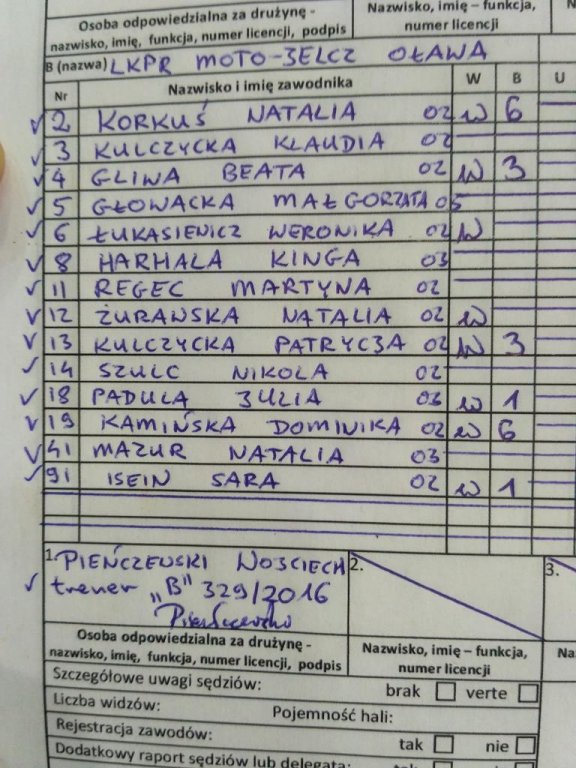 Osoba odpowiedzialna za drużynę -
nazwisko, imię, funkcja, numer licencji, podpis
Nazwisko, imię – funkcja,
numer licencji
N
B (nazwa) LKPR MOTO-JELCZ OŁAWA
Nr Nazwisko i imię zawodnika W B U
2 KORKUŚ NATALIA 02 W 6
3 KULCZYCKA KLAUDIA 02
4 GLIWA BEATA 02 W 3
5 GŁOWACKA MAŁGORZATA 05
6 ŁUKASIENICZ WERONIKA 02 W
8 HARHALA KINGA 03
11 REGEC MARTYNA 02
12 ŻURAWSKA NATALIA 02 W
13 KULCZYCKA PATRYCJA 02 W 3
14 SZULC NIKOLA 02
18 PADULA JULIA 03 W 1
19 KAMIŃSKA DOMINIKA 02 W 6
41 MAZUR NATALIA 03
91 ISEIN SARA 02 W 1
1. PIEŃCZEWSKI WOJCIECH
trener „B" 329/2016
2.
3.
Osoba odpowiedzialna za drużynę -
nazwisko, imię, funkcja, numer licencji, podpis
Nazwisko, imię – funkcja,
numer licencji
Na
Szczegółowe uwagi sędziów: brak verte
Liczba widzów: Pojemność hali:
Rejestracja zawodów: tak nie
Dodatkowy raport sędziów lub delegata: tak nie